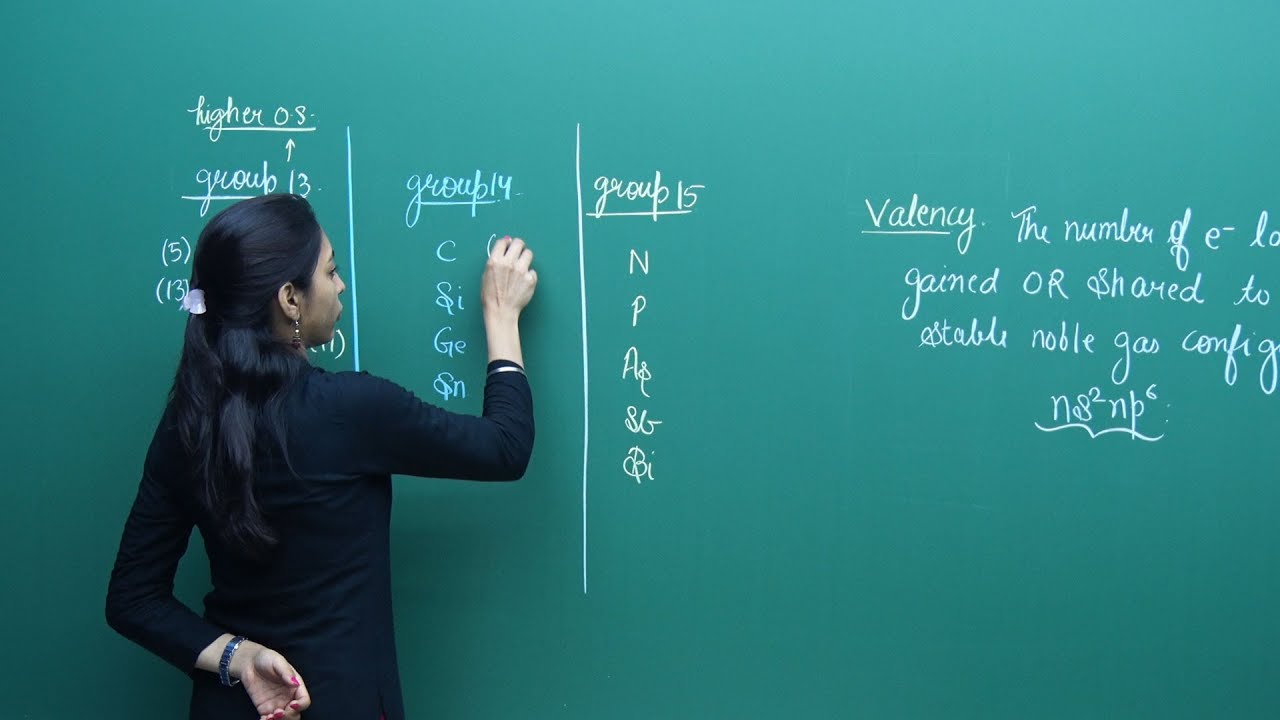 higher O.S.
↑
group 13.
(5)
(13)
II)
group 14.
C (
Si
Ge
Sn
group 15
N
P
As
Sb
Bi
Valency. The number of e⁻ lo
gained OR Shared to
stable noble gas config
ns²np⁶.